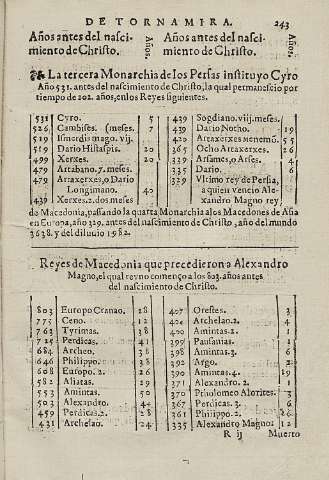 DE TORNAMIRA. 243
Años antes del nasci-
miento de Christo.
Años.
Años antes del nasci-
miento de Christo.
Años.
La tercera Monarchia de los Persas instituyo Cyro
Año 531. antes del nascimiento de Christo, la qual permanescio por
tiempo de 202. años, en los Reyes siguientes.
531 Cyro. 5
526 Cambises. (meses. 7
519 Ismerdis mago. vij.
519 Dario Histaspis. 20
499 Xerxes. 20
479 Artabano. 7. meses.
479 Artaxerxes, o Dario
Longimano. 40
439 Xerxes. 2. dos meses
439 Sogdiano. viij. meses.
439 Dario Notho. 19
420 Artaxerxes Menemõ. 55
365 Ocho Artaxerxes. 26
339 Arsames, o Arses. 4
335 Dario. 6
329 Vltimo rey de Persia,
a quien vencio Ale-
xandro Magno rey
de Macedonia, passando la quarta Monarchia a los Macedones de Asia
en Europa, año 329. antes del nascimiento de Christo, año del mundo
3638. y del diluuio 1982.
Reyes de Macedonia que precedieron a Alexandro
Magno, el qual reyno començo a los 803. años antes
del nascimiento de Christo.
803 Europo Cranao. 28
775 Ceno. 12
763 Tyrimas. 38
725 Perdicas. 41
684 Archeo. 38
646 Philippo. 38
608 Europo. 2. 26
582 Aliatas. 29
553 Amintas. 50
503 Alexandro. 44
459 Perdicas. 2. 28
431 Archelao. 24
407 Orestes. 3
404 Archelao. 2. 4
400 Amintas. 2. 1
399 Pausanias. 1
398 Amintas. 3. 6
392 Argo. 2
390 Amintas. 4. 19
371 Alexandro. 2. 1
370 Ptholomeo Alorites. 3
367 Perdicas. 3. 6
361 Philippo. 2. 26
335 Alexandro Magno. 12
R ij Muerto